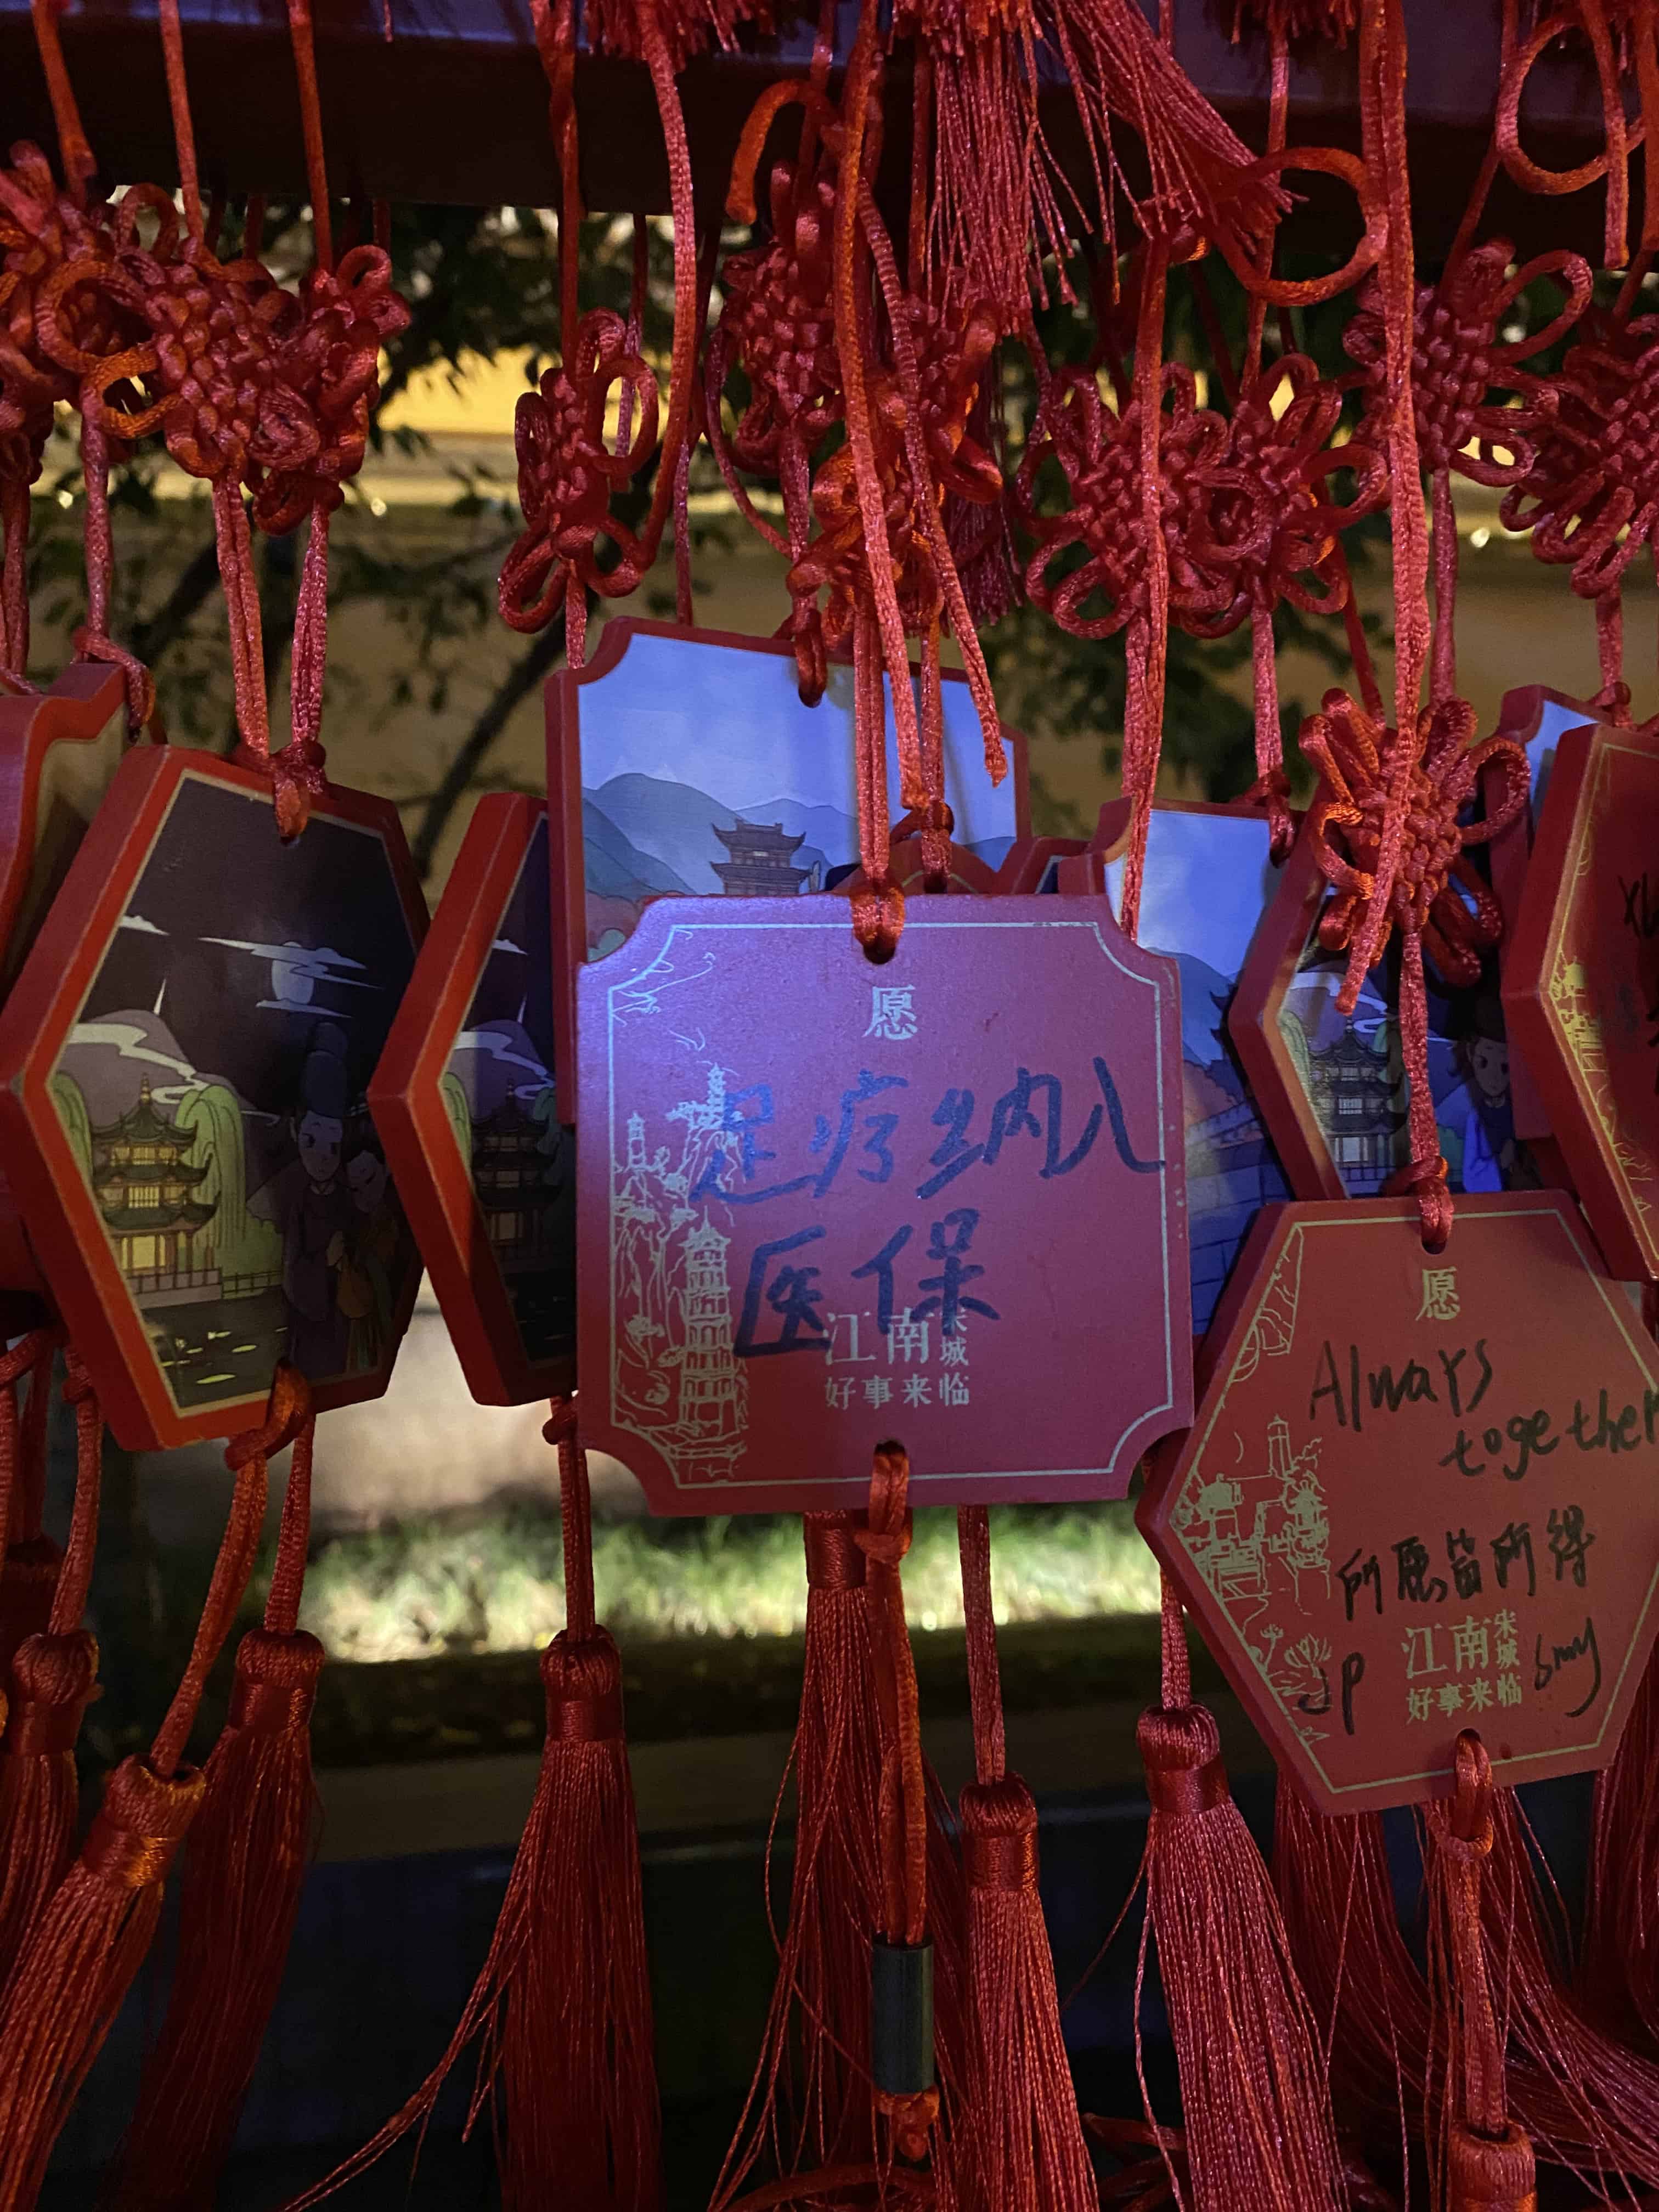 愿
足疗纳入
医保
江南宋城
好事来临
愿
Always
together
所愿皆所得
江南宋城
好事来临
JP